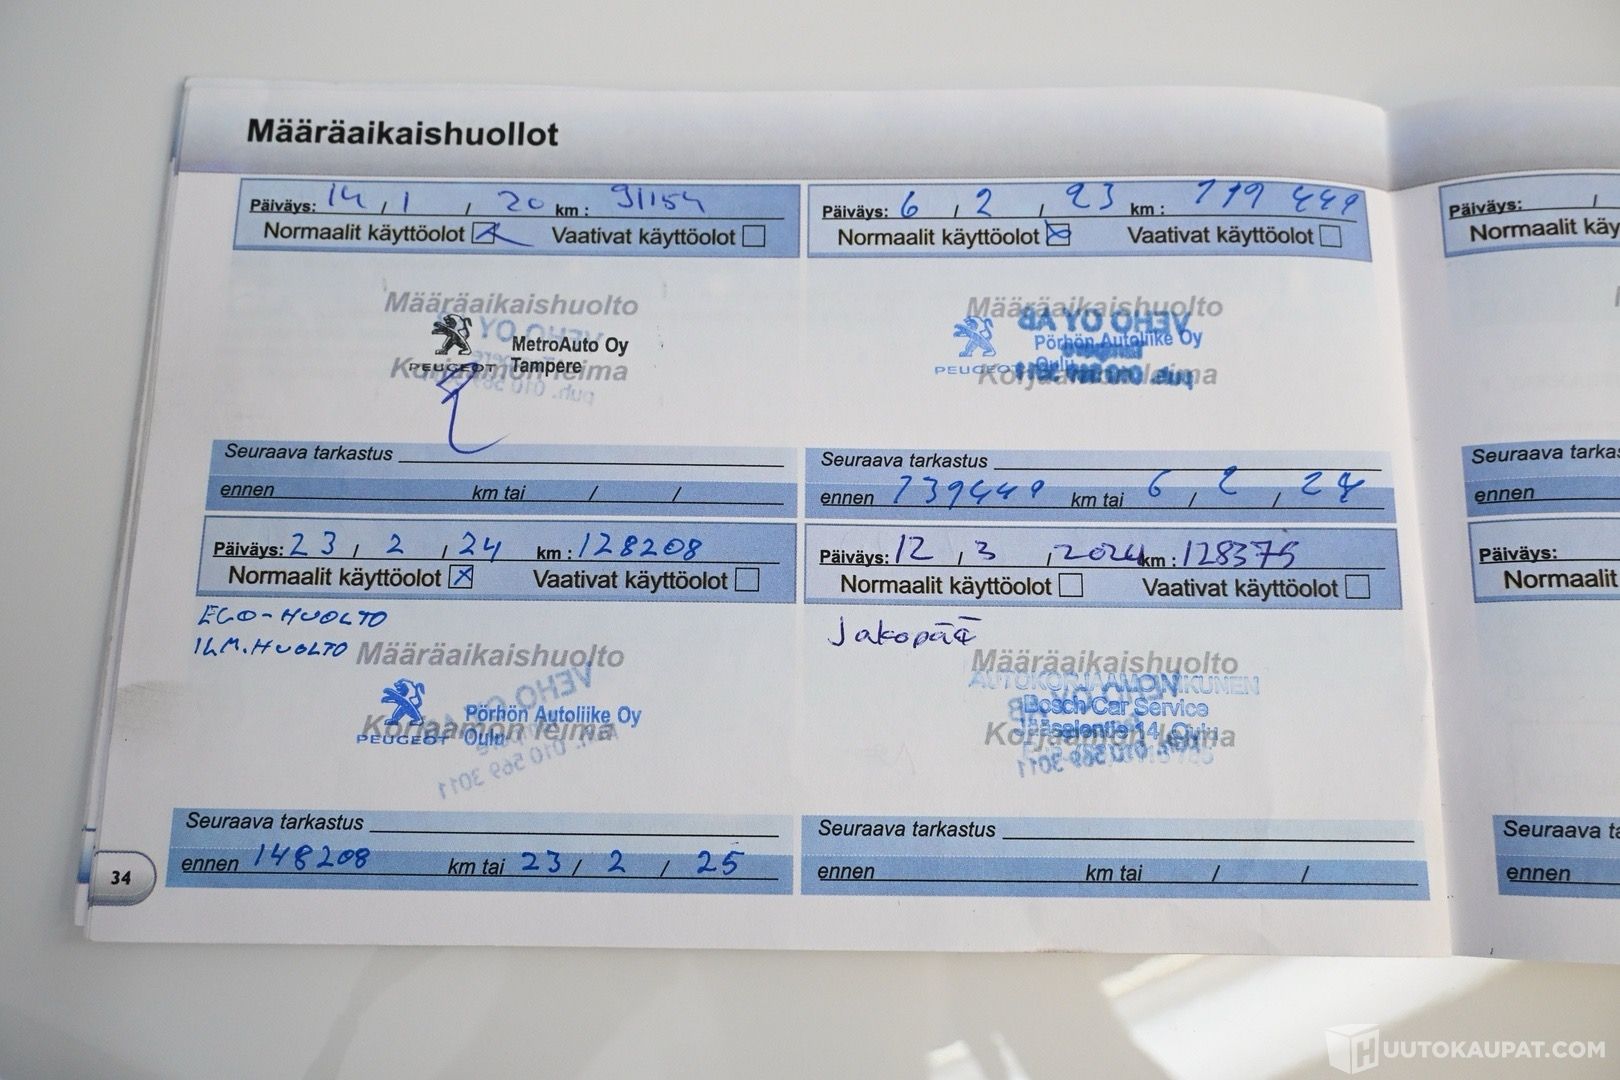 Määräaikaishuollot
Päiväys: 14 / 1 / 20 km : 91154
Normaalit käyttöolot Vaativat käyttöolot
Määräaikaishuolto
MetroAuto Oy
PEUGEOT Tampere
Korjaamon leima
Seuraava tarkastus
ennen km tai / /
Päiväys: 6 / 2 / 23 km : 119 449
Normaalit käyttöolot Vaativat käyttöolot
Määräaikaishuolto
VEHO OY AB
Pörhön Autoliike Oy
PEUGEOT Oulu
Korjaamon leima
Seuraava tarkastus
ennen 139449 km tai 6 / 2 / 24
Päiväys: 23 / 2 / 24 km : 128208
Normaalit käyttöolot X Vaativat käyttöolot
ECO-HUOLTO
ILM.HUOLTO
Määräaikaishuolto
VEHO OY
Pörhön Autoliike Oy
PEUGEOT Oulu
Korjaamon leima
010 569 3011
Seuraava tarkastus
ennen 148208 km tai 23 / 2 / 25
Päiväys: 12 / 3 / 2024 km : 128375
Normaalit käyttöolot Vaativat käyttöolot
Jakopää
Määräaikaishuolto
Bosch Car Service
Korjaamon leima
010 569 3011
Seuraava tarkastus
ennen km tai / /
34
Päiväys: /
Normaalit käy
Seuraava tarkas
ennen
Päiväys:
Normaalit
Seuraava ta
ennen
HUUTOKAUPAT.COM